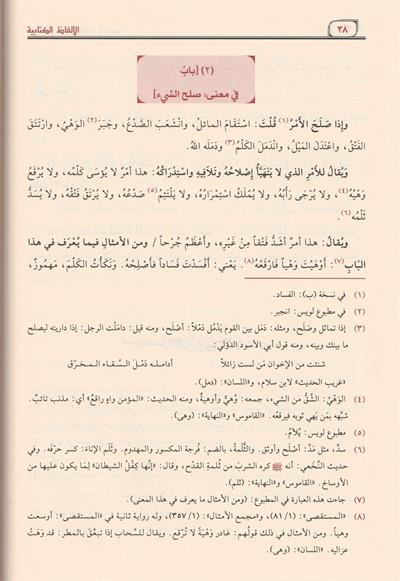 ٣٨
الألفاظ الكتابية
(٢) [باب
في معنى: صلح الشيء]
وإذا صَلَحَ الأَمْرُ(١) قُلْتَ: اسْتَقَامَ المائلُ، وانْشَعَبَ الصَّدْعُ، وجَبَرَ(٢) الوَهْيُ، وارْتَتَقَ
الفَتْقُ، واعْتَدَلَ المَيْلُ، وانْدَمَلَ الكَلْمُ(٣) ودَمَلَه اللهُ.
ويُقالُ للأَمْرِ الذي لا يَتَهَيَّأُ إصْلاحُهُ وتَلافِيهِ واسْتِدْراكُهُ: هذا أمْرٌ لا يُؤسَى كَلْمُه، ولا يُرْقَعُ
وَهْيُهُ(٤)، ولا يُرْجَى رَأْبُهُ، ولا يُمْلَكُ اسْتِمْرارُهُ، ولا يَلْتَئِمُ(٥) صَدْعُهُ، ولا يُرْتَقُ فَتْقُه، ولا يُسَدُّ
ثَلْمُه(٦).
ويُقالُ: هذا أمرٌ أشَدُّ فَتْقاً مِنْ غَيْرِهِ، وأعْظَمُ جُرْحاً / ومن الأمثالِ فيما يُعْرَف في هذا
البَابِ(٧): أَوْهَيْتَ وَهْياً فَارْقَعْهُ(٨). يَعْني: أفسَدْتَ فَساداً فأَصْلِحْهُ. ونَكَأْتُ الكَلْمَ، مَهْمُوزٌ،
(١) في نسخة (ب): الفساد.
(٢) في مطبوع لويس: انجبر.
(٣) إذا تماثل وصَلَح، ومثله: دَمَل بين القوم يَدْمُل دَمْلاً: أَصْلَح، ومنه قيل: دامَلْت الرجل: إذا داريته ليصلح
ما بينك وبينه، ومنه قول أبي الأسود الدؤلي:
شنئت من الإخوان مَن لست زائلاً أدامله دَمْلَ السِّقاء المخرَّق
«غريب الحديث» لابن سلام، و«اللسان»: (دمل).
(٤) الوَهْيُ: الشَّق من الشيء، جمعه: وُهِيٌّ وأوهية، ومنه الحديث: «المؤمن واهٍ راقع» أي: مذنب تائب.
شبَّهه بمَن يَهي ثوبه فيرقعه. «القاموس» و«النهاية»: (وهى).
(٥) مطبوع لويس: يُلأَمُ.
(٦) سدَّ، مثل مَدَّ: أصلح وأوثق. والثُّلْمة، بالضم: فُرجة المكسور والمهدوم. وثَلَم الإناءَ: كسر حرْفَه. وفي
حديث النَّخعي: أنه ﷺ كره الشرب من ثُلمةِ القَدح، وقال: «إنَّها كِفْلُ الشيطان» لِمَا يكون عليها من
الأوساخ. «القاموس» و«النهاية»: (ثلم).
(٧) جاءت هذه العبارة في المطبوع: (ومن الأمثال ما يعرف في هذا المعنى).
(٨) «المستقصى»: (١/ ٨١)، و«مجمع الأمثال»: (١/ ٣٥٧)، وله رواية ثانية في «المستقصى»: أوسعت
وهياً. ومن الأمثال في ذلك قولُهم: غادر وَهْيَةً لا تُرْقع. ويقال للسَّحاب إذا تبعَّق بالمطر: قد وَهَتْ
عزاليه. «اللسان»: (وهى).